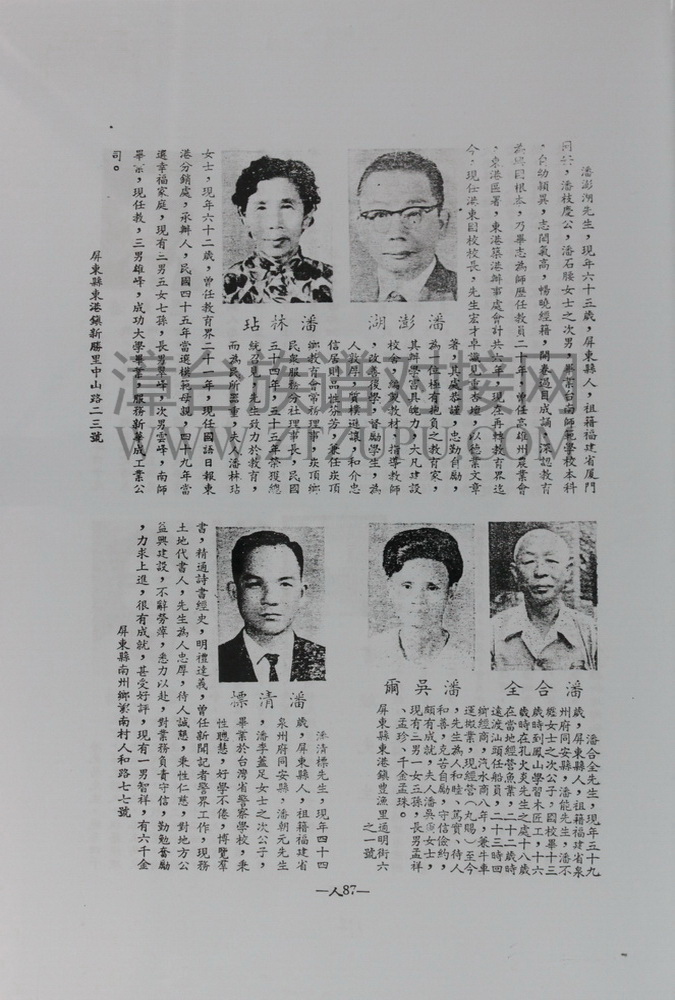 潘澎湖先生，現年六十三歲，屏東縣人，祖籍福建省厦門
同安，潘枝慶公，潘石腰女士之次男，畢業台南師範學校本科
，自幼穎異，志閎氣高，暢曉經籍，開卷過目成誦，深認教育
為強國根本，乃畢志為師歷任教員二十年，曾任高雄州農業會
，東港區署，東港築港辦事處會計共六年，現在再轉教育界迄
今，現任港東國校校長，先生宏才卓識見重杏壇，以德業文章
著，其處恭謹，忠勤自勵，
為一位極有抱負之教育家，
其辦學富具魄力，大凡建設
校舍，編製教材，指導教師
，改善復學，督勵學生，為
人敦厚，質樸遜讓，和介忠
信居時品性芬芳，兼任崁頂
鄉教育會常務理事，崁頂鄉
民衆服務分社理事長，民國
五十四年，五十五年榮獲總
統召見，先生致力於教育，
而為民所器重，夫人潘林玷
潘澎湖
潘林玷
女士，現年六十二歲，曾任教育界二十一年，現任國語日報東
港分銷處，承辦人，民國四十五年當選模範母親，四十九年當
選幸福家庭，現有三男五女七孫，長男翠峰，次男雲峰，南師
畢業，現任教，三男雄峰，成功大學畢業，服務新華成工業公
司。
屏東縣東港鎮新勝里中山路二三號
潘合全
潘吳爾
潘合全先生，現年五十九
歲，屏東縣人，祖籍福建省泉
州府同安縣，潘能先生，潘不
纒女士之次公子，國校畢十三
歲時到鳳山學習木匠工，十六
歲時在孔火炎先生之處十八歲
時在當地經營漁業，二十二歲時
遠渡汕頭任船員，二十三時回
鄉經商，汽水商八年，兼牛車
運搬業，現經營（九賜）至今
，先生為人和睦、篤實、待人
和善，克苦自勵，守信儉約，
頗有成就，夫人潘吳爾女士，
現有三男一女三孫，長男孟祥
、孟珍、千金孟珠。
屏東縣東港鎮豊漁里通明街六
之一號
潘清標
潘清標先生，現年四十四
歲，屏東縣人，祖籍福建省
泉州府同安縣，潘朝元先生
，潘李蓋足女士之次公子，
畢業於台灣省警察學校，秉
性聰慧，好學不倦，博覽羣
書，精通詩書經史，明禮達義，曾任新聞記者警界工作，現務
土地代書人，先生為人忠厚，待人誠懇，秉性仁慈，對地方公
益興建設，不辭勞瘁，悉力以赴，對業務負責守信，勤勉奮勵
，力求上進，很有成就，甚受好評，現有一男智祥，有六千金
屏東縣南州鄉溪南村人和路七七號
—人87—
漳台族譜对接网
ZTZUPU.COM